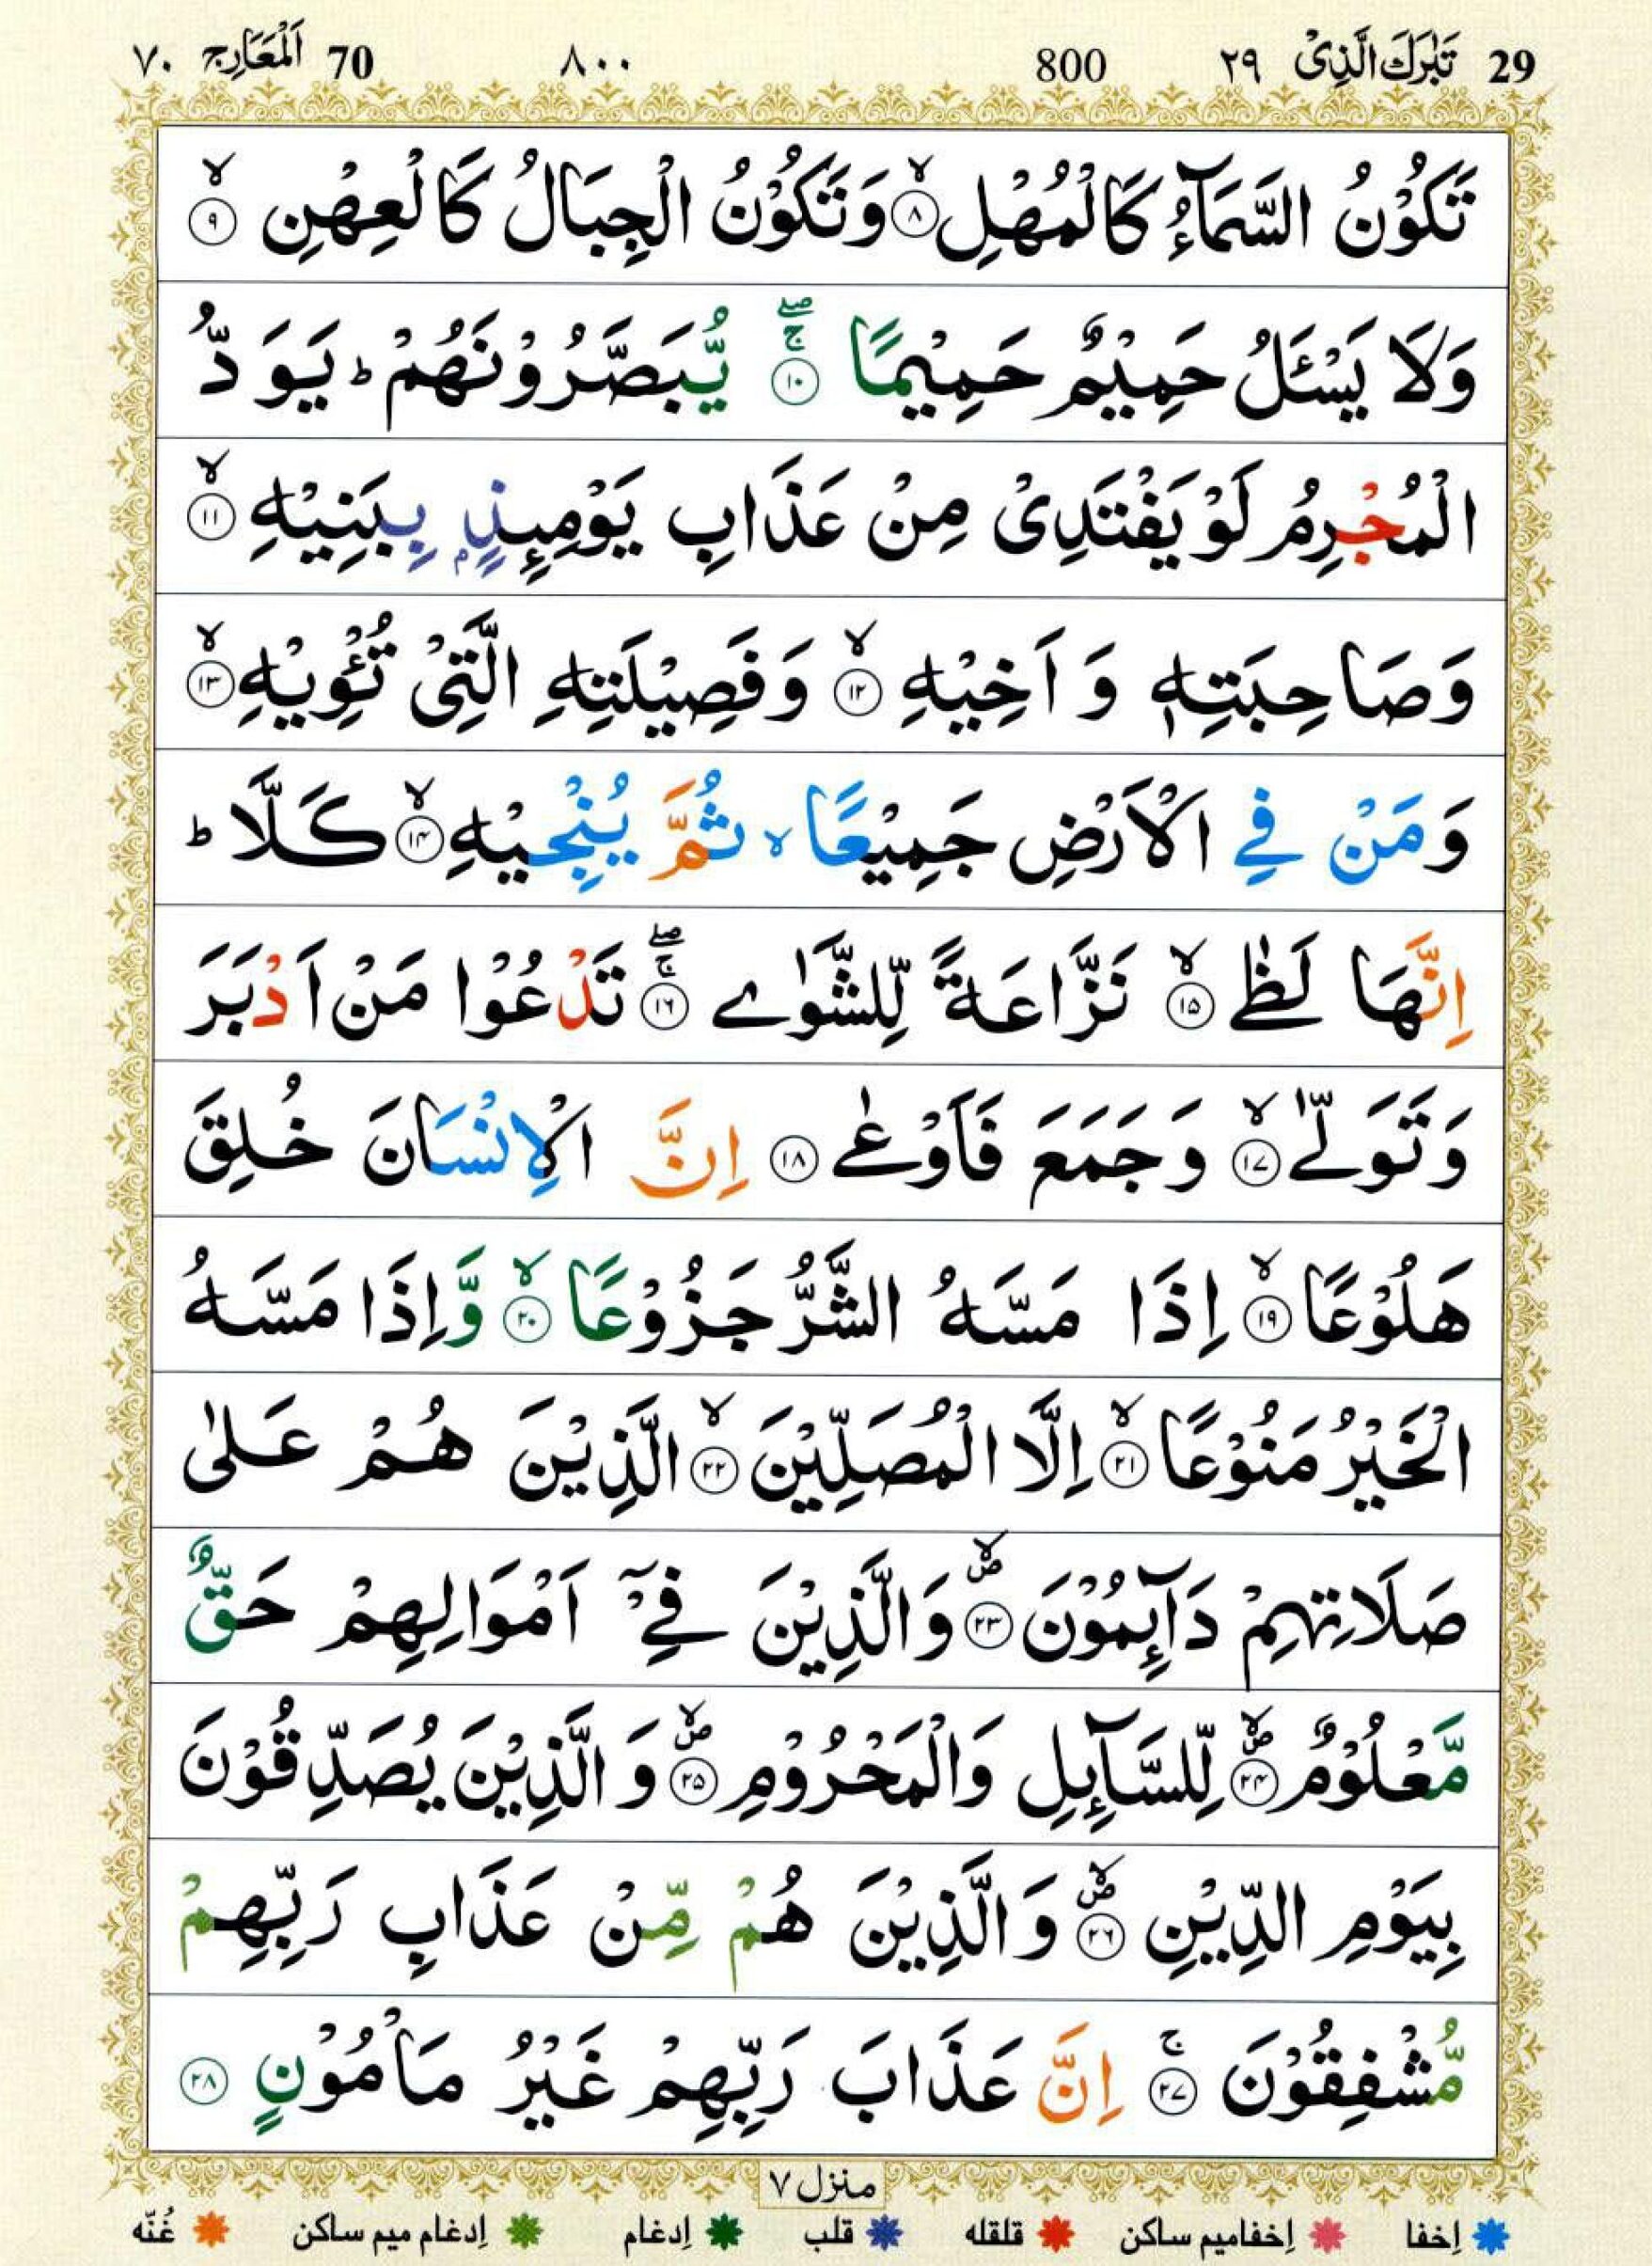 29 تَبٰرَكَ الَّذِیْ ٢٩ 800 ٨٠٠ 70 اَلْمَعَارِج ٧٠
تَكُوْنُ السَّمَآءُ كَالْمُهْلِ ۙ﴿٨﴾ وَتَكُوْنُ الْجِبَالُ كَالْعِهْنِ ۙ﴿٩﴾
وَلَا يَسْـَٔلُ حَمِيْمٌ حَمِيْمًا ۚۖ﴿١٠﴾ يُّبَصَّرُوْنَهُمْ ؕ يَوَدُّ
الْمُجْرِمُ لَوْ يَفْتَدِیْ مِنْ عَذَابِ يَوْمِئِذٍۭ بِبَنِيْهِ ۙ﴿١١﴾
وَصَاحِبَتِهٖ وَاَخِيْهِ ۙ﴿١٢﴾ وَفَصِيْلَتِهِ الَّتِیْ تُـْٔوِيْهِ ۙ﴿١٣﴾
وَمَنْ فِی الْاَرْضِ جَمِيْعًا ۙ ثُمَّ يُنْجِيْهِ ۙ﴿١٤﴾ كَلَّا ؕ
اِنَّهَا لَظٰی ۙ﴿١٥﴾ نَزَّاعَةً لِّلشَّوٰی ۚۖ﴿١٦﴾ تَدْعُوْا مَنْ اَدْبَرَ
وَتَوَلّٰی ۙ﴿١٧﴾ وَجَمَعَ فَاَوْعٰی ﴿١٨﴾ اِنَّ الْاِنْسَانَ خُلِقَ
هَلُوْعًا ۙ﴿١٩﴾ اِذَا مَسَّهُ الشَّرُّ جَزُوْعًا ۙ﴿٢٠﴾ وَّاِذَا مَسَّهُ
الْخَيْرُ مَنُوْعًا ۙ﴿٢١﴾ اِلَّا الْمُصَلِّيْنَ ۙ﴿٢٢﴾ الَّذِيْنَ هُمْ عَلٰی
صَلَاتِهِمْ دَآئِمُوْنَ ۪ۙ﴿٢٣﴾ وَالَّذِيْنَ فِیْۤ اَمْوَالِهِمْ حَقٌّ
مَّعْلُوْمٌ ۪ۙ﴿٢٤﴾ لِّلسَّآئِلِ وَالْمَحْرُوْمِ ۪ۙ﴿٢٥﴾ وَالَّذِيْنَ يُصَدِّقُوْنَ
بِيَوْمِ الدِّيْنِ ۪ۙ﴿٢٦﴾ وَالَّذِيْنَ هُمْ مِّنْ عَذَابِ رَبِّهِمْ
مُّشْفِقُوْنَ ۚ﴿٢٧﴾ اِنَّ عَذَابَ رَبِّهِمْ غَيْرُ مَاْمُوْنٍ ﴿٢٨﴾
منزل ٧
إخفا إخفامیم ساكن قلقله قلب إدغام إدغام میم ساكن غُنّه